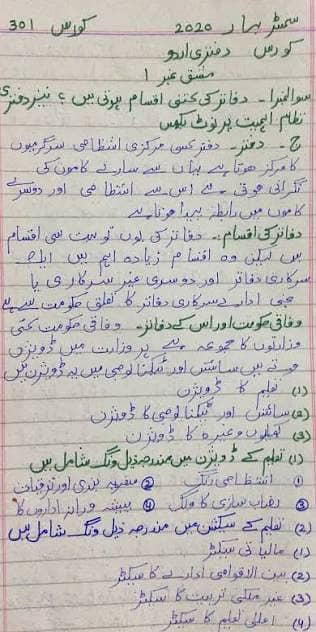 سمسٹر بہار 2020 کورس 301
کورس دفتری اردو
مشق نمبر 1
سوال نمبر 1۔ دفاتر کی کتنی اقسام ہوتی ہیں؟ نیز دفتری
نظام اہمیت پر نوٹ لکھیں
ج۔ دفتر۔ دفتر کسی مرکزی انتظامی سرگرمیوں
کا مرکز ھوتا ہے یہاں سے سارے کاموں کی
نگرانی ھوتی ہے اس سے انتظامی اور دوسرے
کاموں میں رابطہ پیدا ھوتا ہے
دفاتر کی اقسام:۔ دفاتر کی یوں تو بہت سی اقسام
ہیں لیکن وہ اقسام زیادہ اہم ہیں ایک
سرکاری دفاتر اور دوسری غیر سرکاری یا
نجی ادارے سرکاری دفاتر کا تعلق حکومت سے ہے
وفاقی حکومت اور اس کے دفاتر۔ وفاقی حکومت کئی
وزارتوں کا مجموعہ ہے ہر وزارت میں ڈویژن
ھوتے ہیں سائنس اور ٹیکنالوجی میں یہ ڈویژن ہیں
(1) تعلیم کا ڈویژن
(2) سائنس اور ٹیکنالوجی کا ڈویژن
(3) کھیلوں وغیرہ کا ڈویژن
(1) تعلیم کے ڈویژن میں مندرجہ ذیل ونگ شامل ہیں
① انتظامی ونگ ② منصوبہ بندی اور ترقیات
③ نصاب سازی کا ونگ ④ پیشہ ورانہ اداروں کا
(2) تعلیم کے سیکشن میں مندرجہ ذیل ونگ شامل ہیں
(1) مالیاتی سیکٹر
(2) بین الاقوامی ادارے کا سیکٹر
(3) غیر ملکی تربیت کا سیکٹر
(4) اعلیٰ تعلیم کا سیکٹر